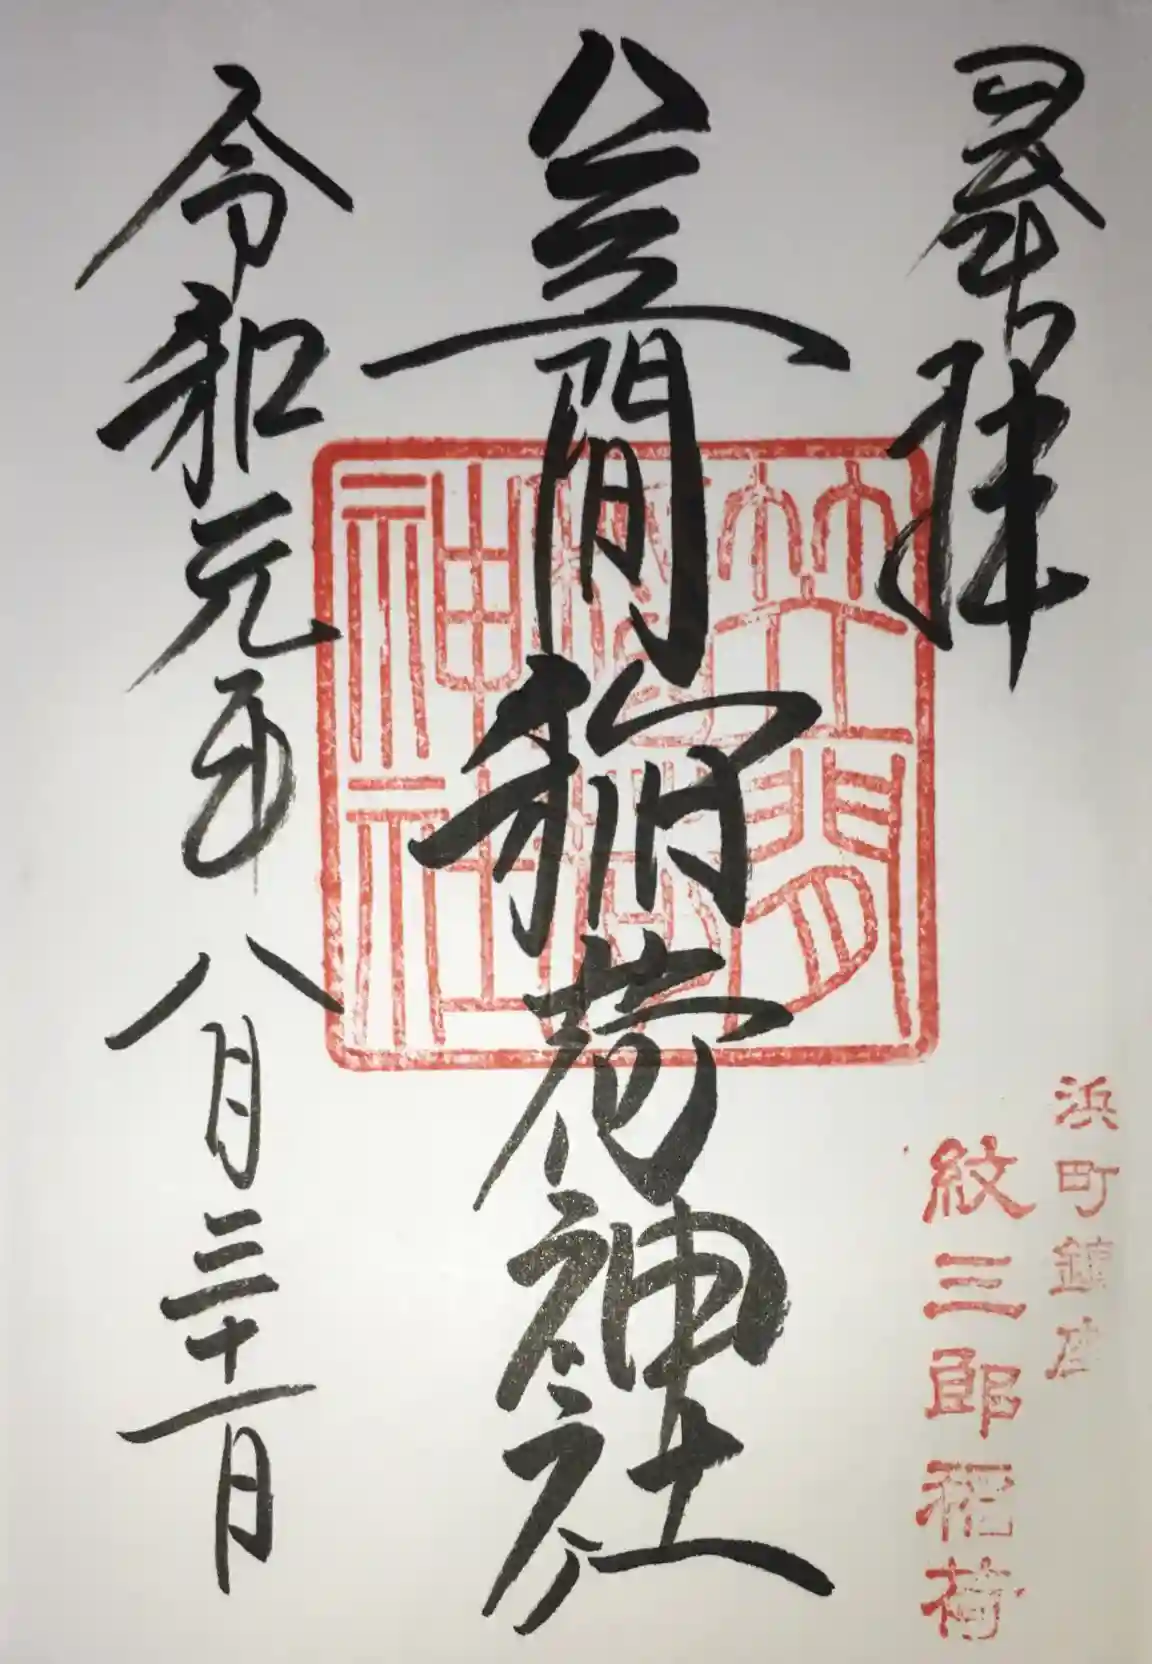 奉拝
浜町鎮座
紋三郎稲荷
笠間稲荷神社
笠間稲荷神社
令和元年八月三十一日